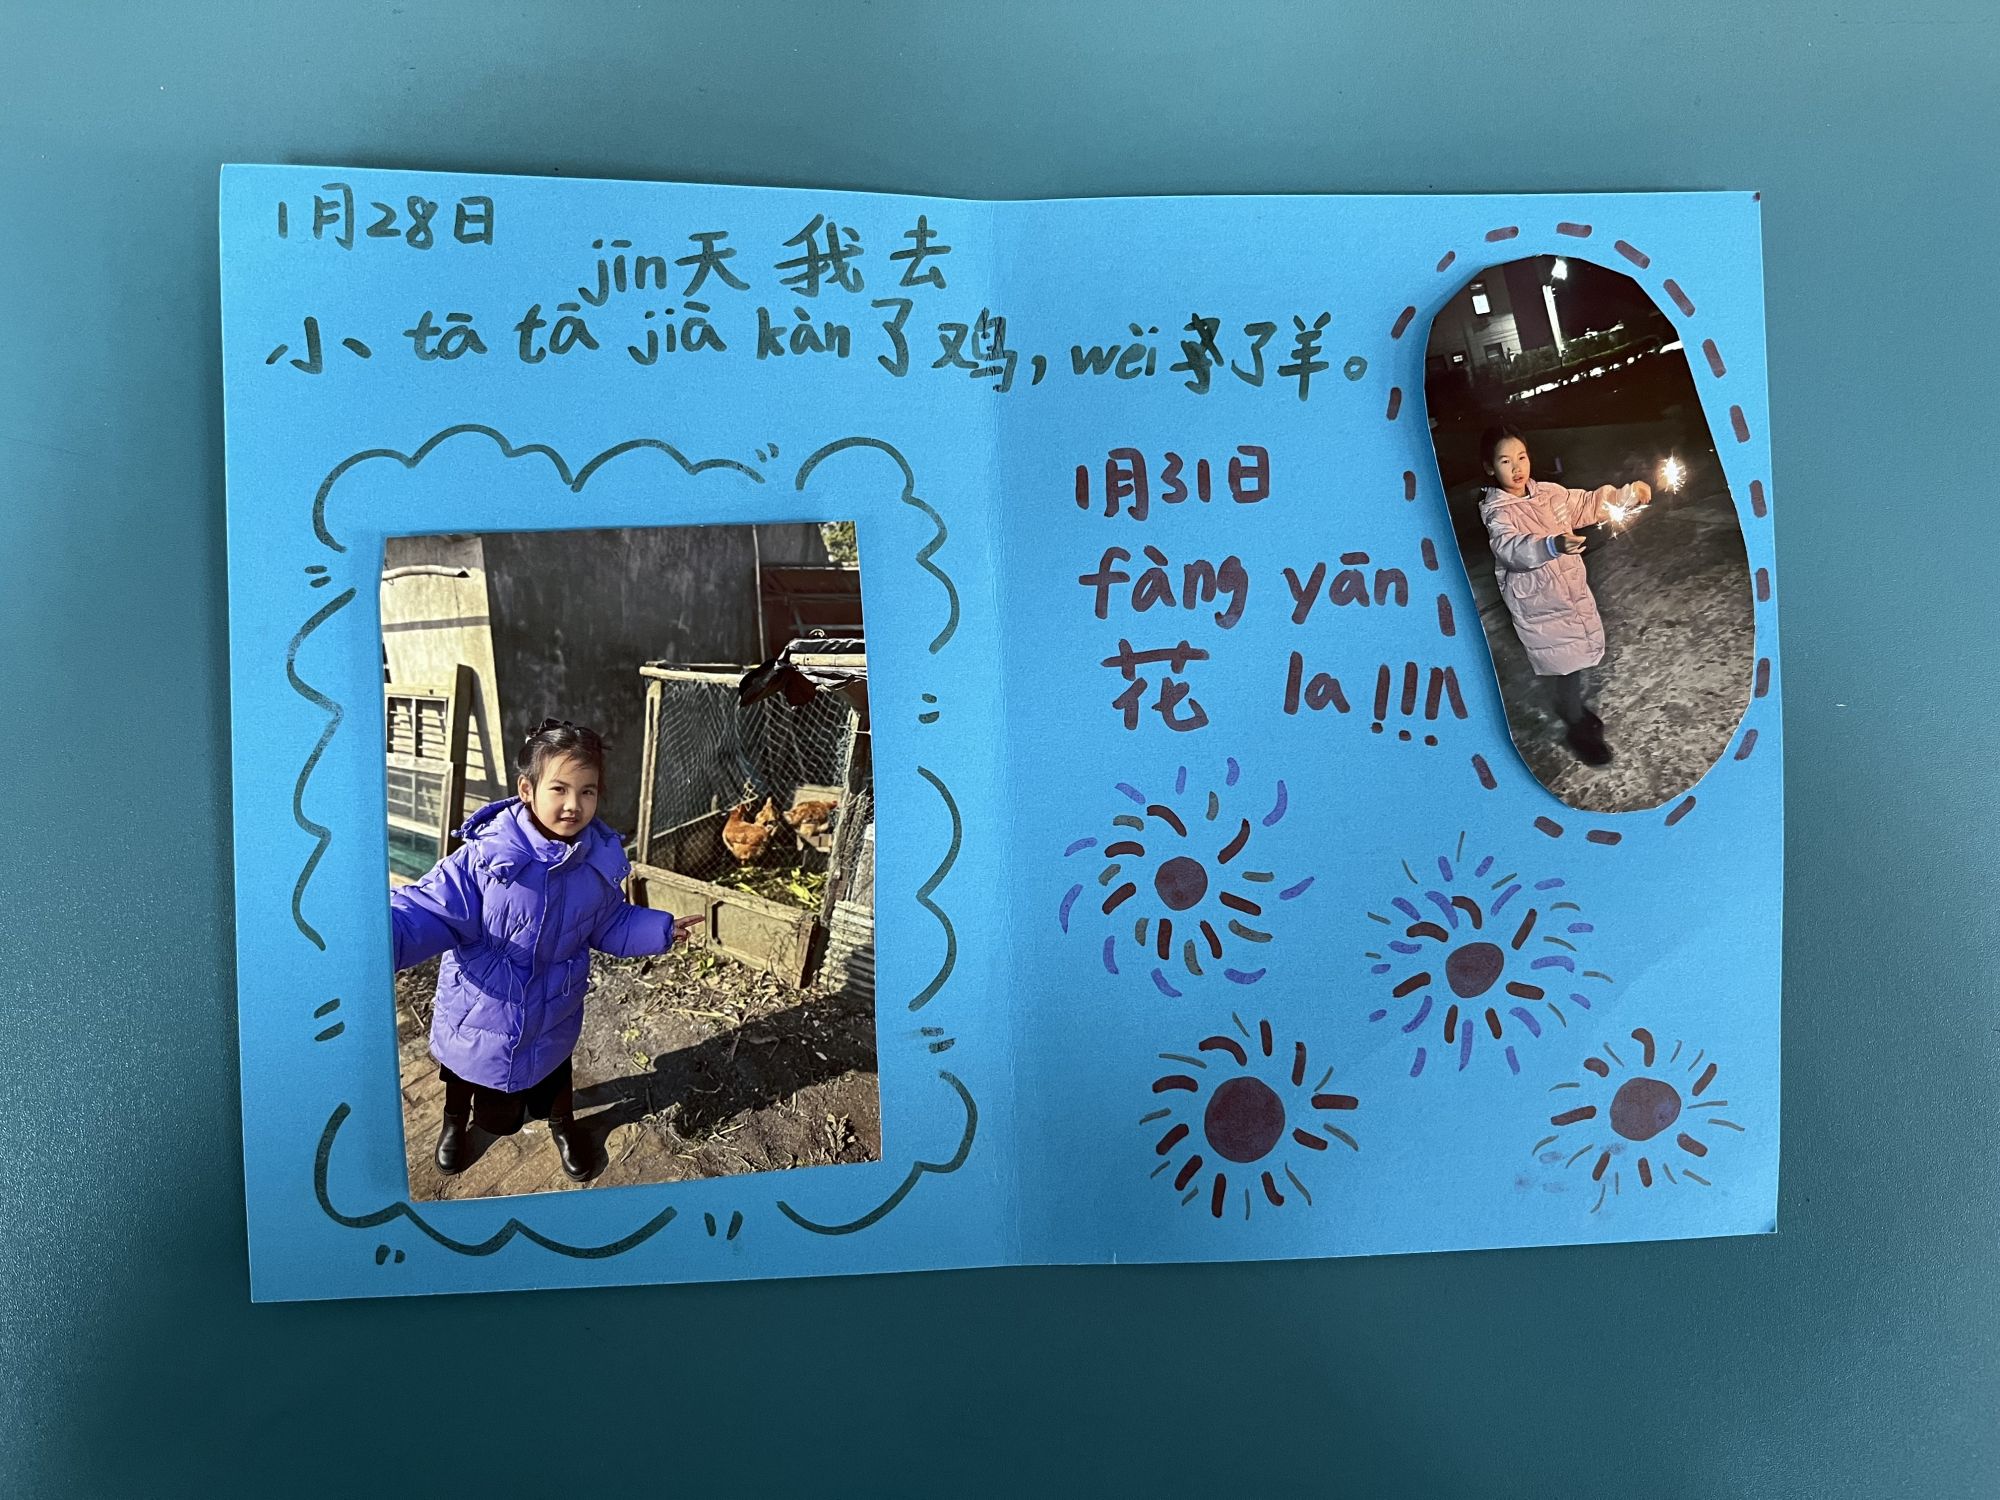 1月28日
jīn天 我 去
小 tā tā jiā kàn 了鸡, wèi 了羊。
1月31日
fàng yān
花 la !!!